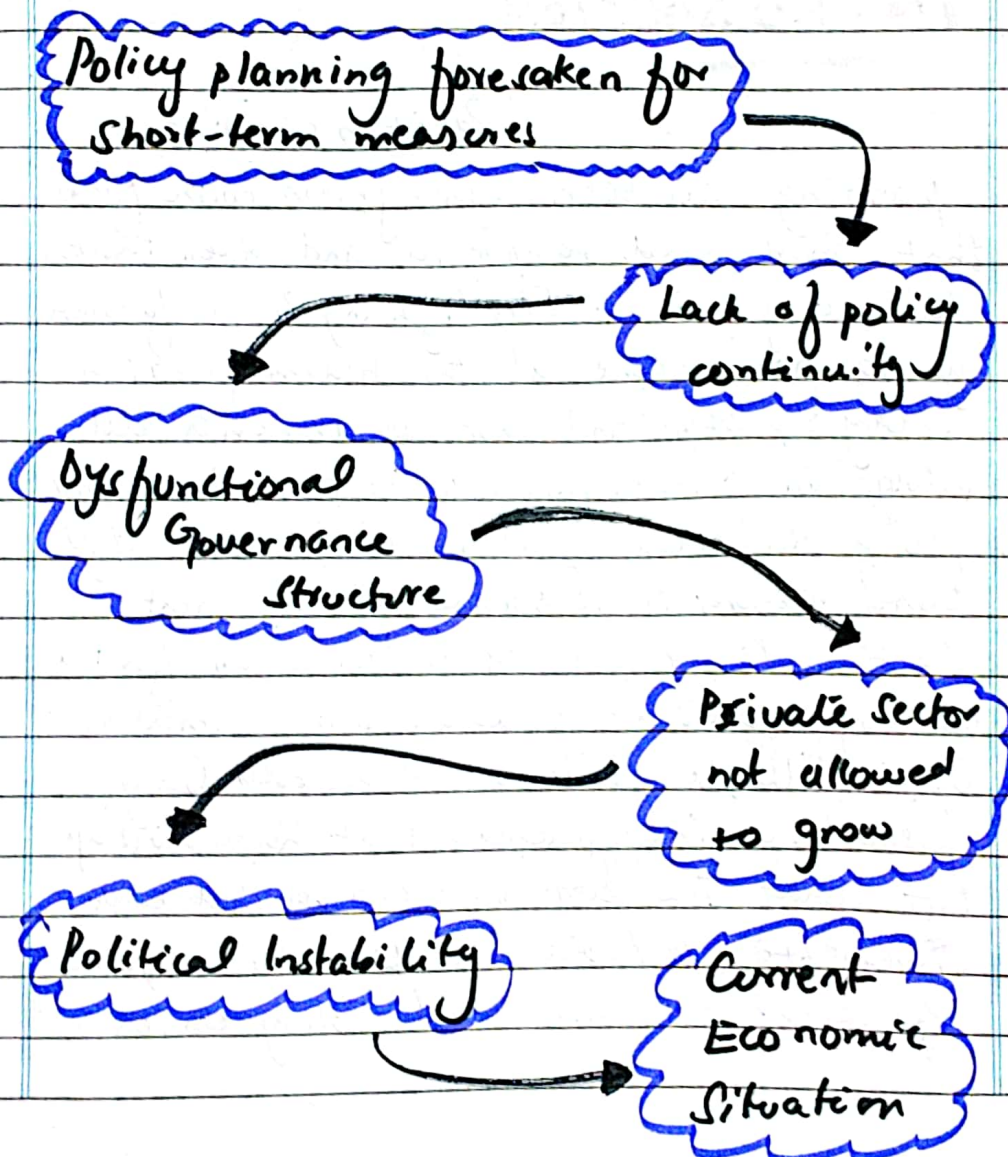 Policy planning foresaken for
short-term measures
Lack of policy
continuity
Dysfunctional
Governance
structure
Private sector
not allowed
to grow
Political Instability
Current
Economic
Situation